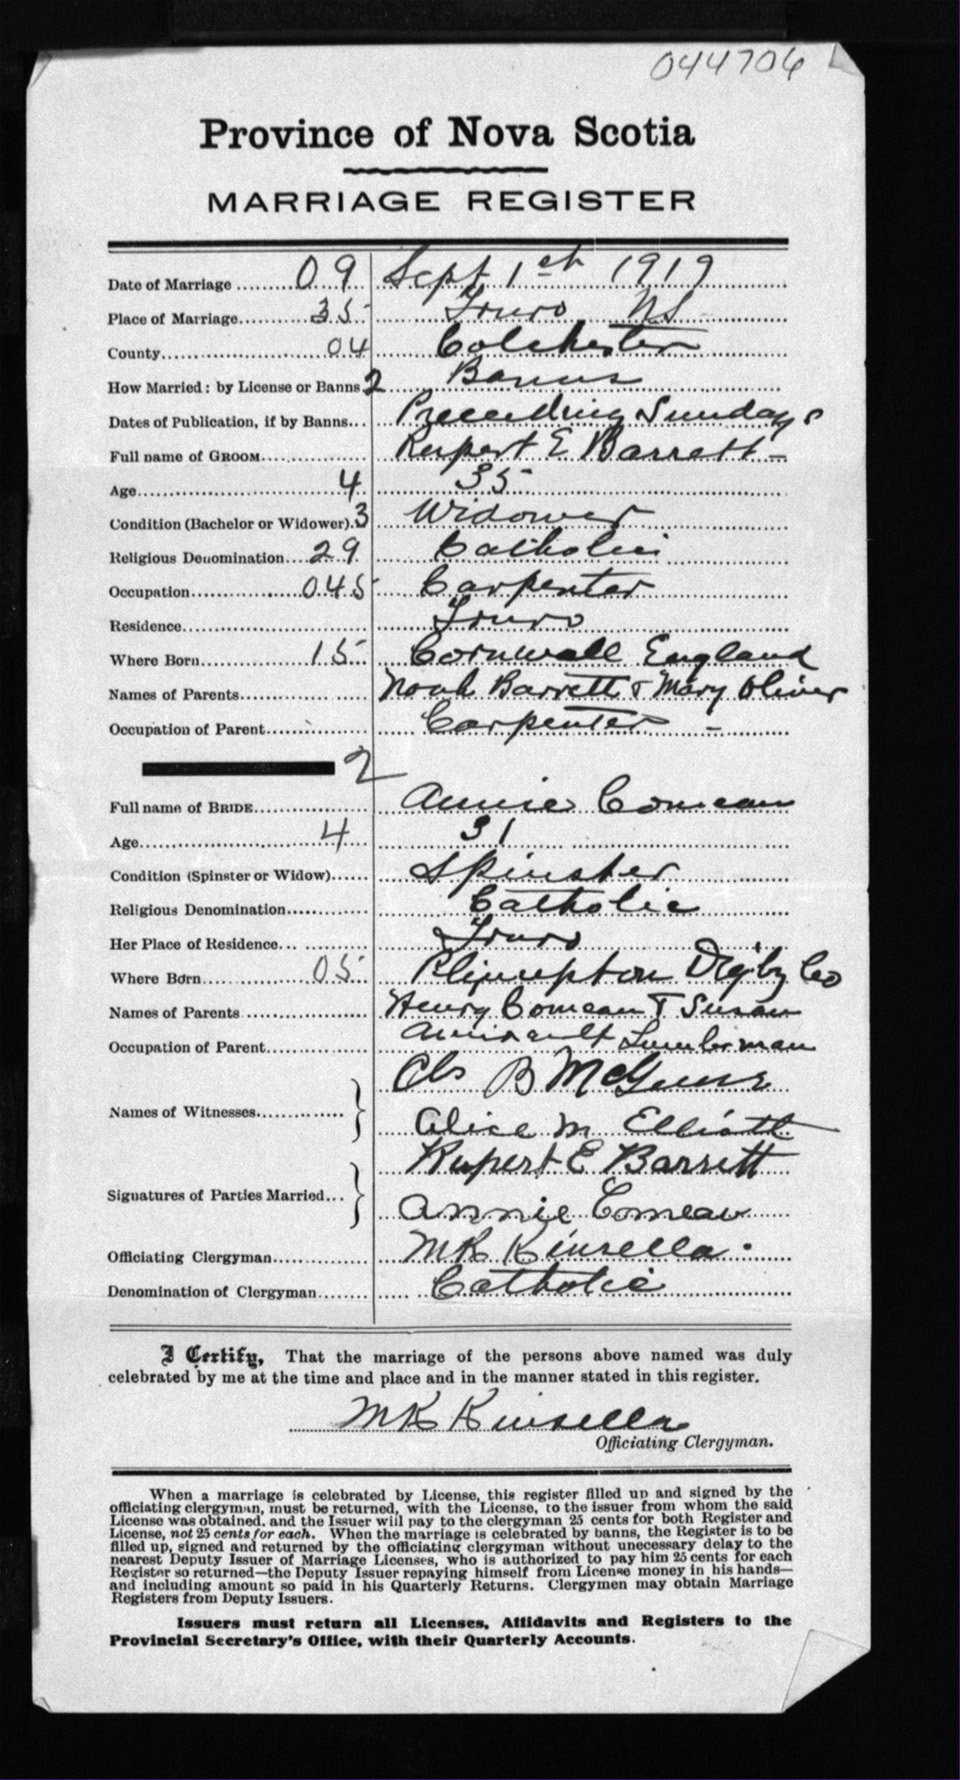 044706
Province of Nova Scotia
MARRIAGE REGISTER
Date of Marriage 09 Sept 1st 1919
Place of Marriage 35 Truro NS
County 04 Colchester
How Married: by License or Banns 2 Banns
Dates of Publication, if by Banns Preceeding Sundays
Full name of GROOM Rupert E Barrett
Age 4 35
Condition (Bachelor or Widower) 3 Widower
Religious Denomination 29 Catholic
Occupation 045 Carpenter
Residence Truro
Where Born 15 Cornwall England
Names of Parents Noah Barrett & Mary Oliver
Occupation of Parent Carpenter -
2
Full name of BRIDE Annie Comeau
Age 4 31
Condition (Spinster or Widow) Spinster
Religious Denomination Catholic
Her Place of Residence Truro
Where Born 05 Plimpton Digby Co
Names of Parents Henry Comeau & Susan
Occupation of Parent Amirault Lumberman
B
Names of Witnesses
Alice M Elliott
Rupert E Barrett
Signatures of Parties Married
Annie Comeau
Officiating Clergyman MR Kinsella
Denomination of Clergyman Catholic
I Certify, That the marriage of the persons above named was duly
celebrated by me at the time and place and in the manner stated in this register.
MR Kinsella
Officiating Clergyman.
When a marriage is celebrated by License, this register filled up and signed by the
officiating clergyman, must be returned, with the License, to the issuer from whom the said
License was obtained, and the Issuer will pay to the clergyman 25 cents for both Register and
License, not 25 cents for each. When the marriage is celebrated by banns, the Register is to be
filled up, signed and returned by the officiating clergyman without unecessary delay to the
nearest Deputy Issuer of Marriage Licenses, who is authorized to pay him 25 cents for each
Register so returned—the Deputy Issuer repaying himself from License money in his hands—
and including amount so paid in his Quarterly Returns. Clergymen may obtain Marriage
Registers from Deputy Issuers.
Issuers must return all Licenses, Affidavits and Registers to the
Provincial Secretary's Office, with their Quarterly Accounts.